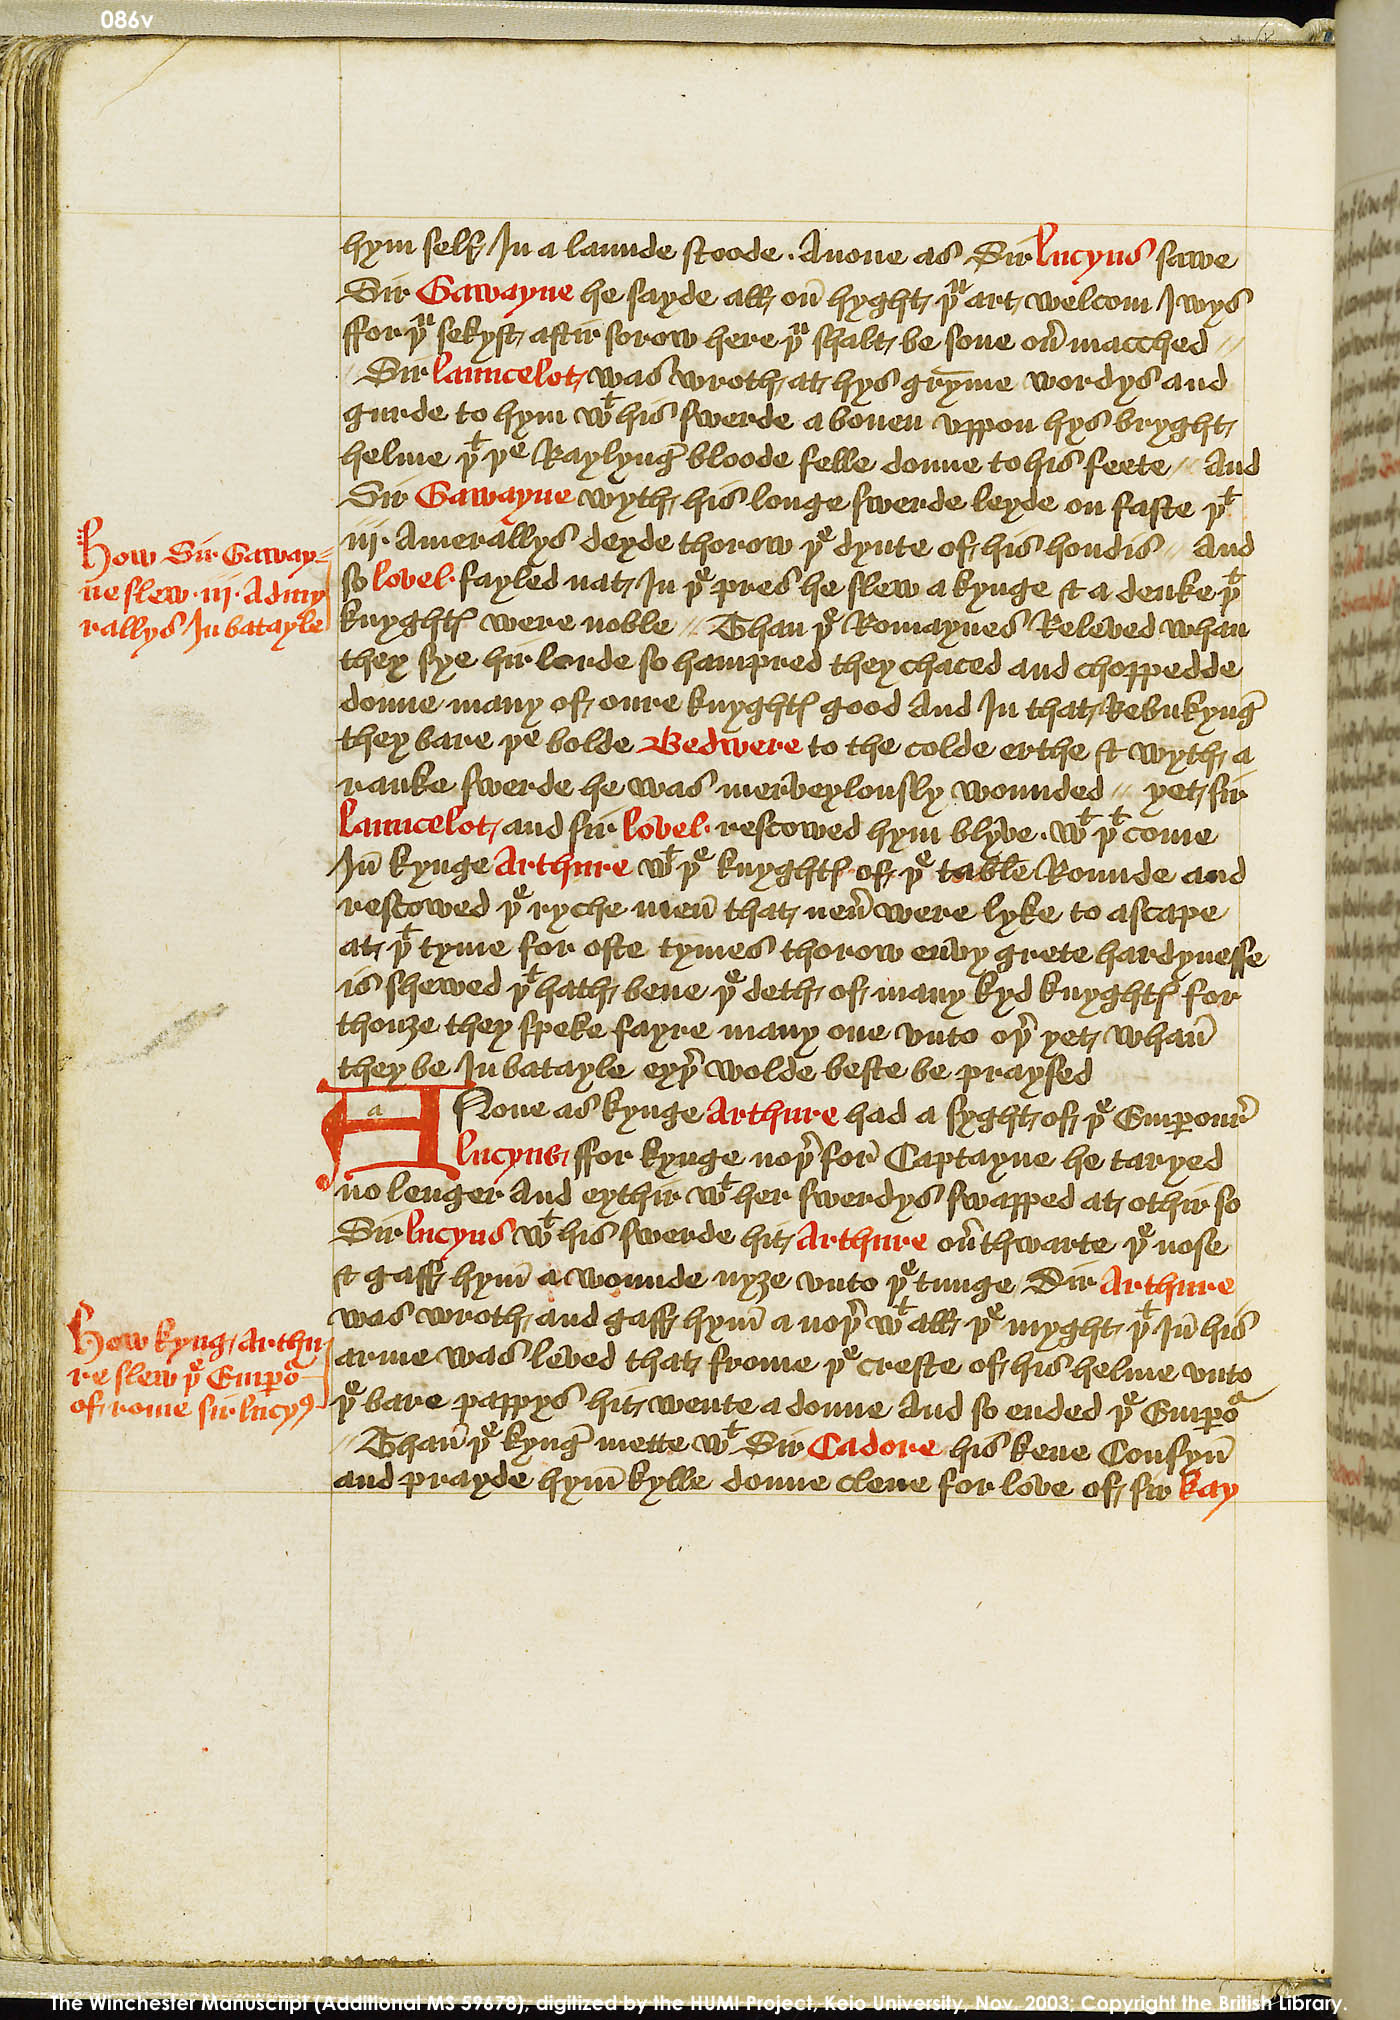 086v
hym self In a launde stoode . Anone as Sir Lucyus sawe
Sir Gawayne he sayde all on hyght þu art welcom Iwys
ffor þu sekyst aftir sorow here þu shalt be sone oū macched //
// Sir Launcelot was wroth at hys gryme wordys and
gurde to hym wt his swerde a boven vppon hys bryght
helme þt þe Raylyng bloode felle doune to his feete // And
Sir Gawayne wyth his longe swerde leyde on faste þt
iij. Amerallys deyde thorow þe dynte of his hondis // And
so Lovel . fayled nat In þe pres he slew a kynge & a deuke þt
knyghtꝭ were noble // Than þe Romaynes Releved whan
they sye hir lorde so hampred they chaced and choppedde
doune many of oure knyghtꝭ good And In that Rebukyng
they bare þe bolde Bedwere to the colde erthe & wyth a
ranke swerde he was merveylously wounded // yet sir
Launcelot and sir Lovel . rescowed hym blyve . wt þt come
In kynge Arthure wt þe knyghtꝭ of þe table Rounde and
rescowed þe ryche men that neū were lyke to ascape
at þt tyme for ofte tymes thorow envy grete hardynesse
is shewed þt hath bene þe deth of many kyd knyghtꝭ for
thouȝe they speke fayre many one vnto oþr yet whan
they be In batayle eyþr wolde beste be praysed
How Sir Gaway=
ne slew . iij . Admy
rallys In batayle
Anone as kynge Arthure had a syght of þe Emperour
Lucyus ffor kynge noþr for Captayne he taryed
no lenger And eythir wt her swerdys swapped at othir so
Sir Lucyus wt his swerde hit Arthure oūthwarte þe nose
& gaff hym a wounde nyȝe vnto þe tunge Sir Arthure
was wroth and gaff hym a noþr wt all þe myght þt In his
arme was leved that frome þe creste of his helme vnto
þe bare pappys hit wente a doune And so ended þe Empoʳ
// Than þe kyng mette wt Sir Cadore his kene Cousyn
and prayde hym kylle doune clene for love of sir kay
How kyng Arthu
re slew þe Empoʳ
of rome sir lucyꝯ
The Winchester Manuscript (Additional MS 59678), digitized by the HUMI Project, Keio University, Nov. 2003; Copyright the British Library.